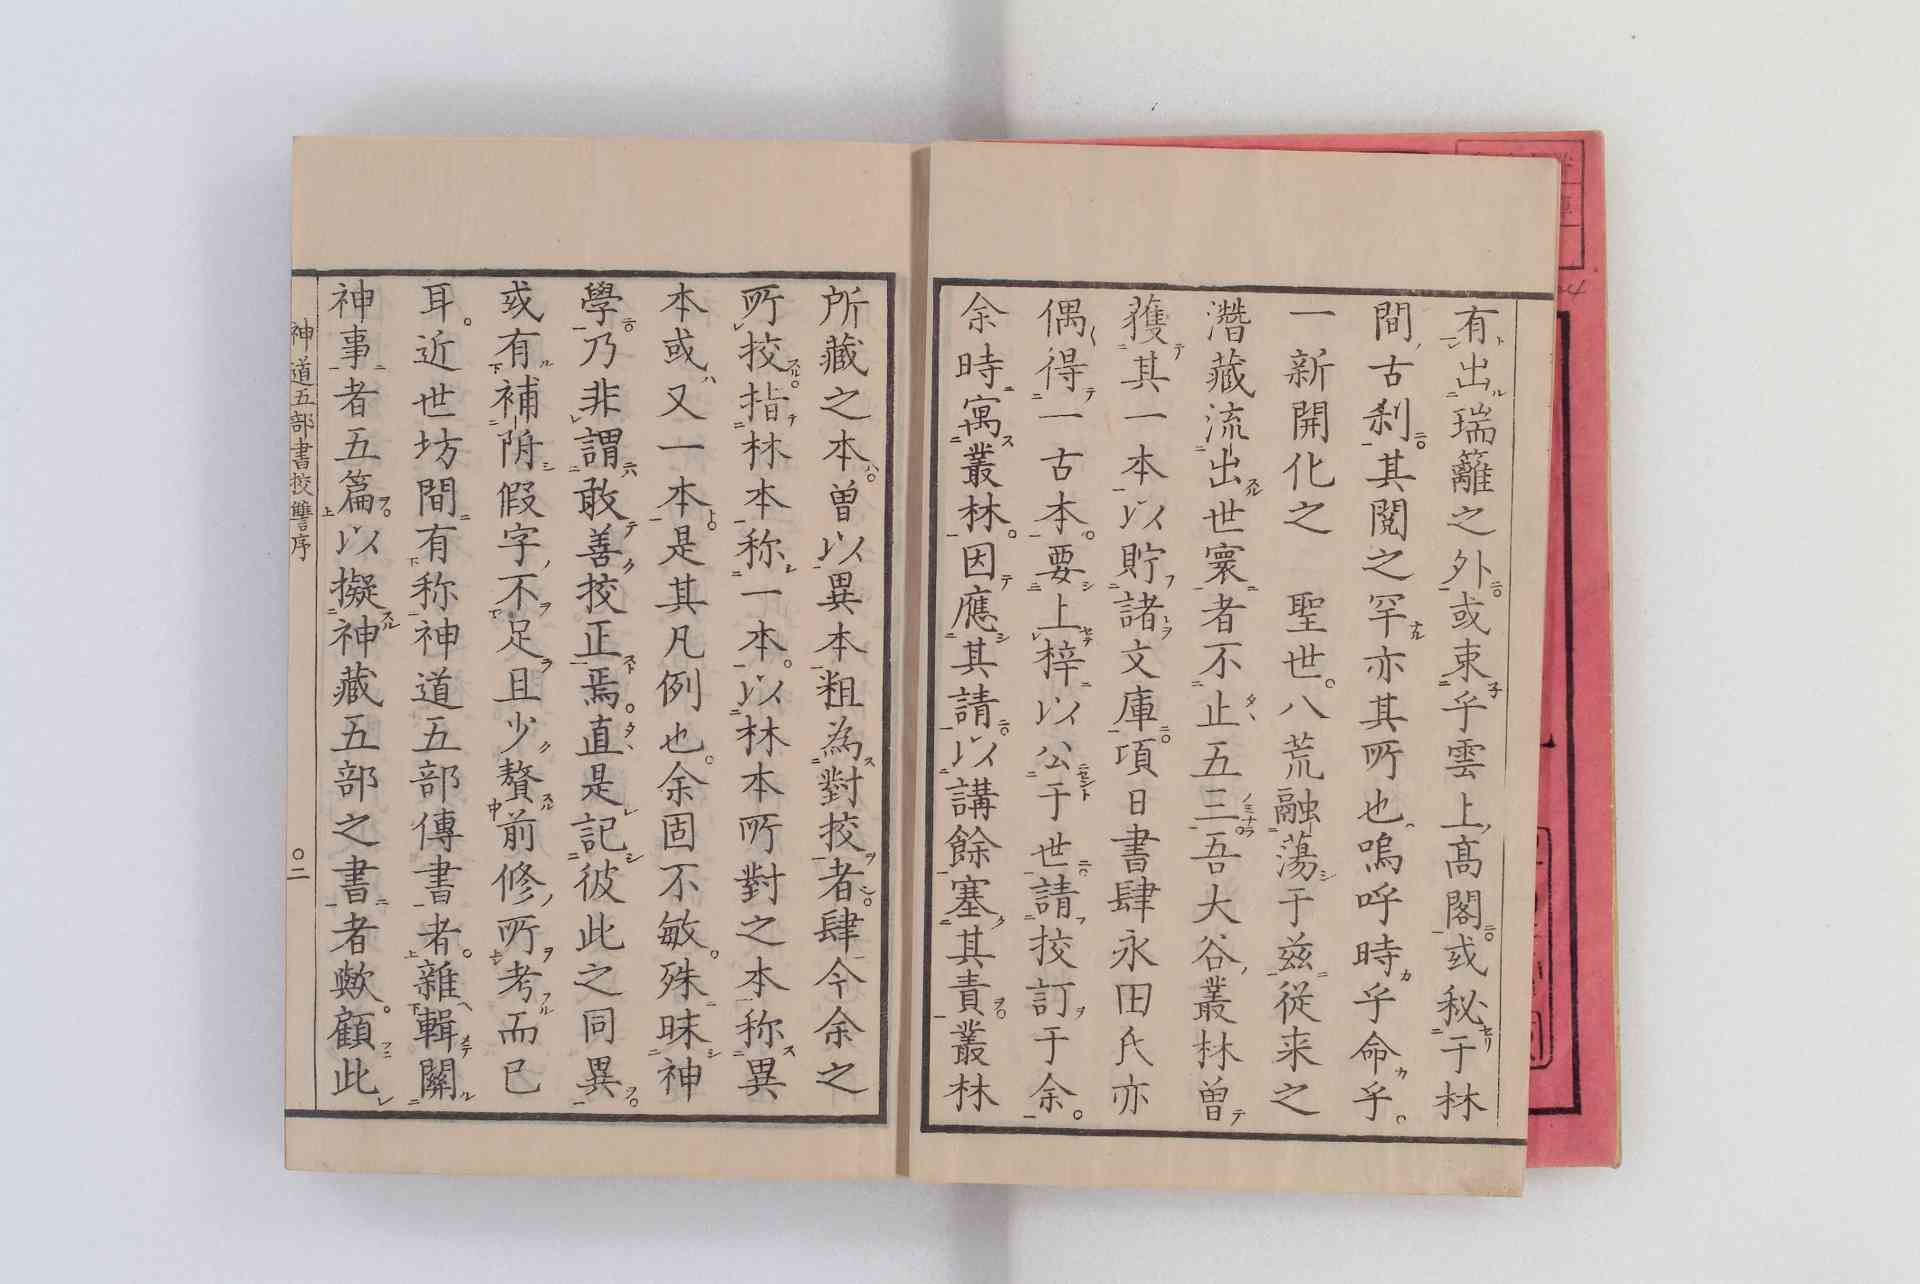 有出瑞籬之外或束乎雲上髙閣或秘于林
間古刹其閲之罕亦其所也嗚呼時乎命乎
一新開化之　聖世八荒融蕩于茲從来之
潛藏流出世寰者不止五三吾大谷叢林曽
獲其一本以貯諸文庫項日書肆永田氏亦
偶得一古本要上梓以公于世請挍訂于余
余時寓叢林因應其請以講餘塞其責叢林
所藏之本曽以異本粗為對挍者肆今余之
所挍指林本称一本以林本所對之本称異
本或又一本是其凡例也余固不敏殊昧神
學乃非謂敢善挍正焉直是記彼此之同異
或有補附假字不足且少贅前修所考而已
耳近世坊間有称神道五部傳書者雜輯關
神事者五篇以擬神藏五部之書者歟顧此
神道五部書挍讐序
〇二